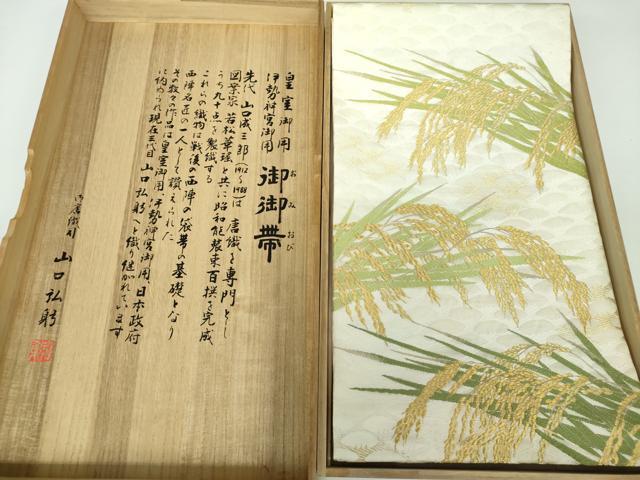 皇室御用
伊勢神宮御用
御御帯
おみおび
先代 山口成三郎(1912〜1988)は 唐織を専門とし
図案家 若松華瑶と共に昭和能装束百撰を完成
うち九十点を製織する
これらの織物は戦後の西陣の袋帯の基礎となり
西陣名匠の一人として讃えられた
その数々の作品は皇室御用、伊勢神宮御用、日本政府
に納められ現在三代目 山口弘躬へと織り継がれています
山口弘躬